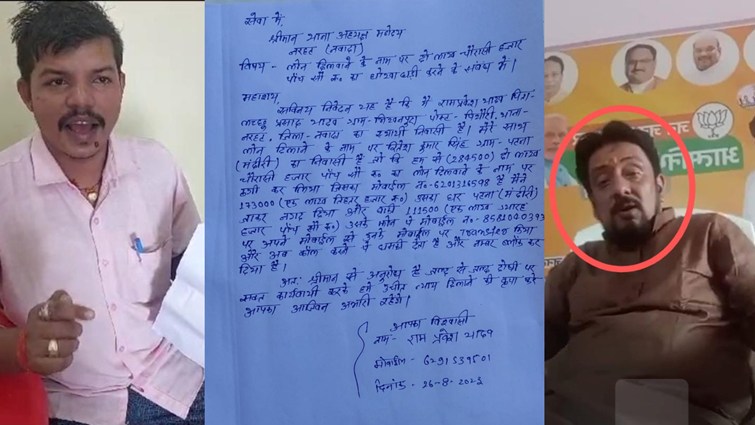 सेवा में,
श्रीमान थाना अध्यक्ष महोदय
नरहट (नवादा)
विषय - लोन दिलवाने के नाम पर दो लाख चौरासी हजार
पाँच सौ रू० का धोखाधड़ी करने के संबंध में।
महाशय,
सविनय निवेदन यह है कि मैं रामप्रवेश यादव पिता-
प्रसाद यादव ग्राम- पोस्ट- थाना-
नरहट, जिला- नवादा का स्थायी निवासी हूँ। मेरे साथ
लोन दिलाने के नाम पर कुमार सिंह ग्राम- पटना
का निवासी है जो कि हम से (284500) दो लाख
चौरासी हजार पाँच सौ रू० का लोन दिलवाने के नाम पर
ठगी कर लिया जिसका मोबाईल नं०-6201314598 है मैंने
173000 रू०) पटना
जाकर नगद दिया और बाकी 111500 (एक लाख ग्यारह
हजार पाँच सौ रू०) उसके फोन पे मोबाईल नं०- 8581040393
पर अपने मोबाईल से उनके मोबाईल पर किया
और अब कॉल करने पे धमकी देता है और नम्बर ब्लॉक कर
दिया है।
अतः श्रीमान से अनुरोध है जल्द से जल्द दोषी पर
कार्यवाही करके हमें उचित न्याय दिलाने की कृपा करें
आपका आजीवन आभारी रहेंगे।
आपका विश्वासी
नाम- राम प्रवेश यादव
मोबाईल - 6291539501
दिनांक - 26-8-2023